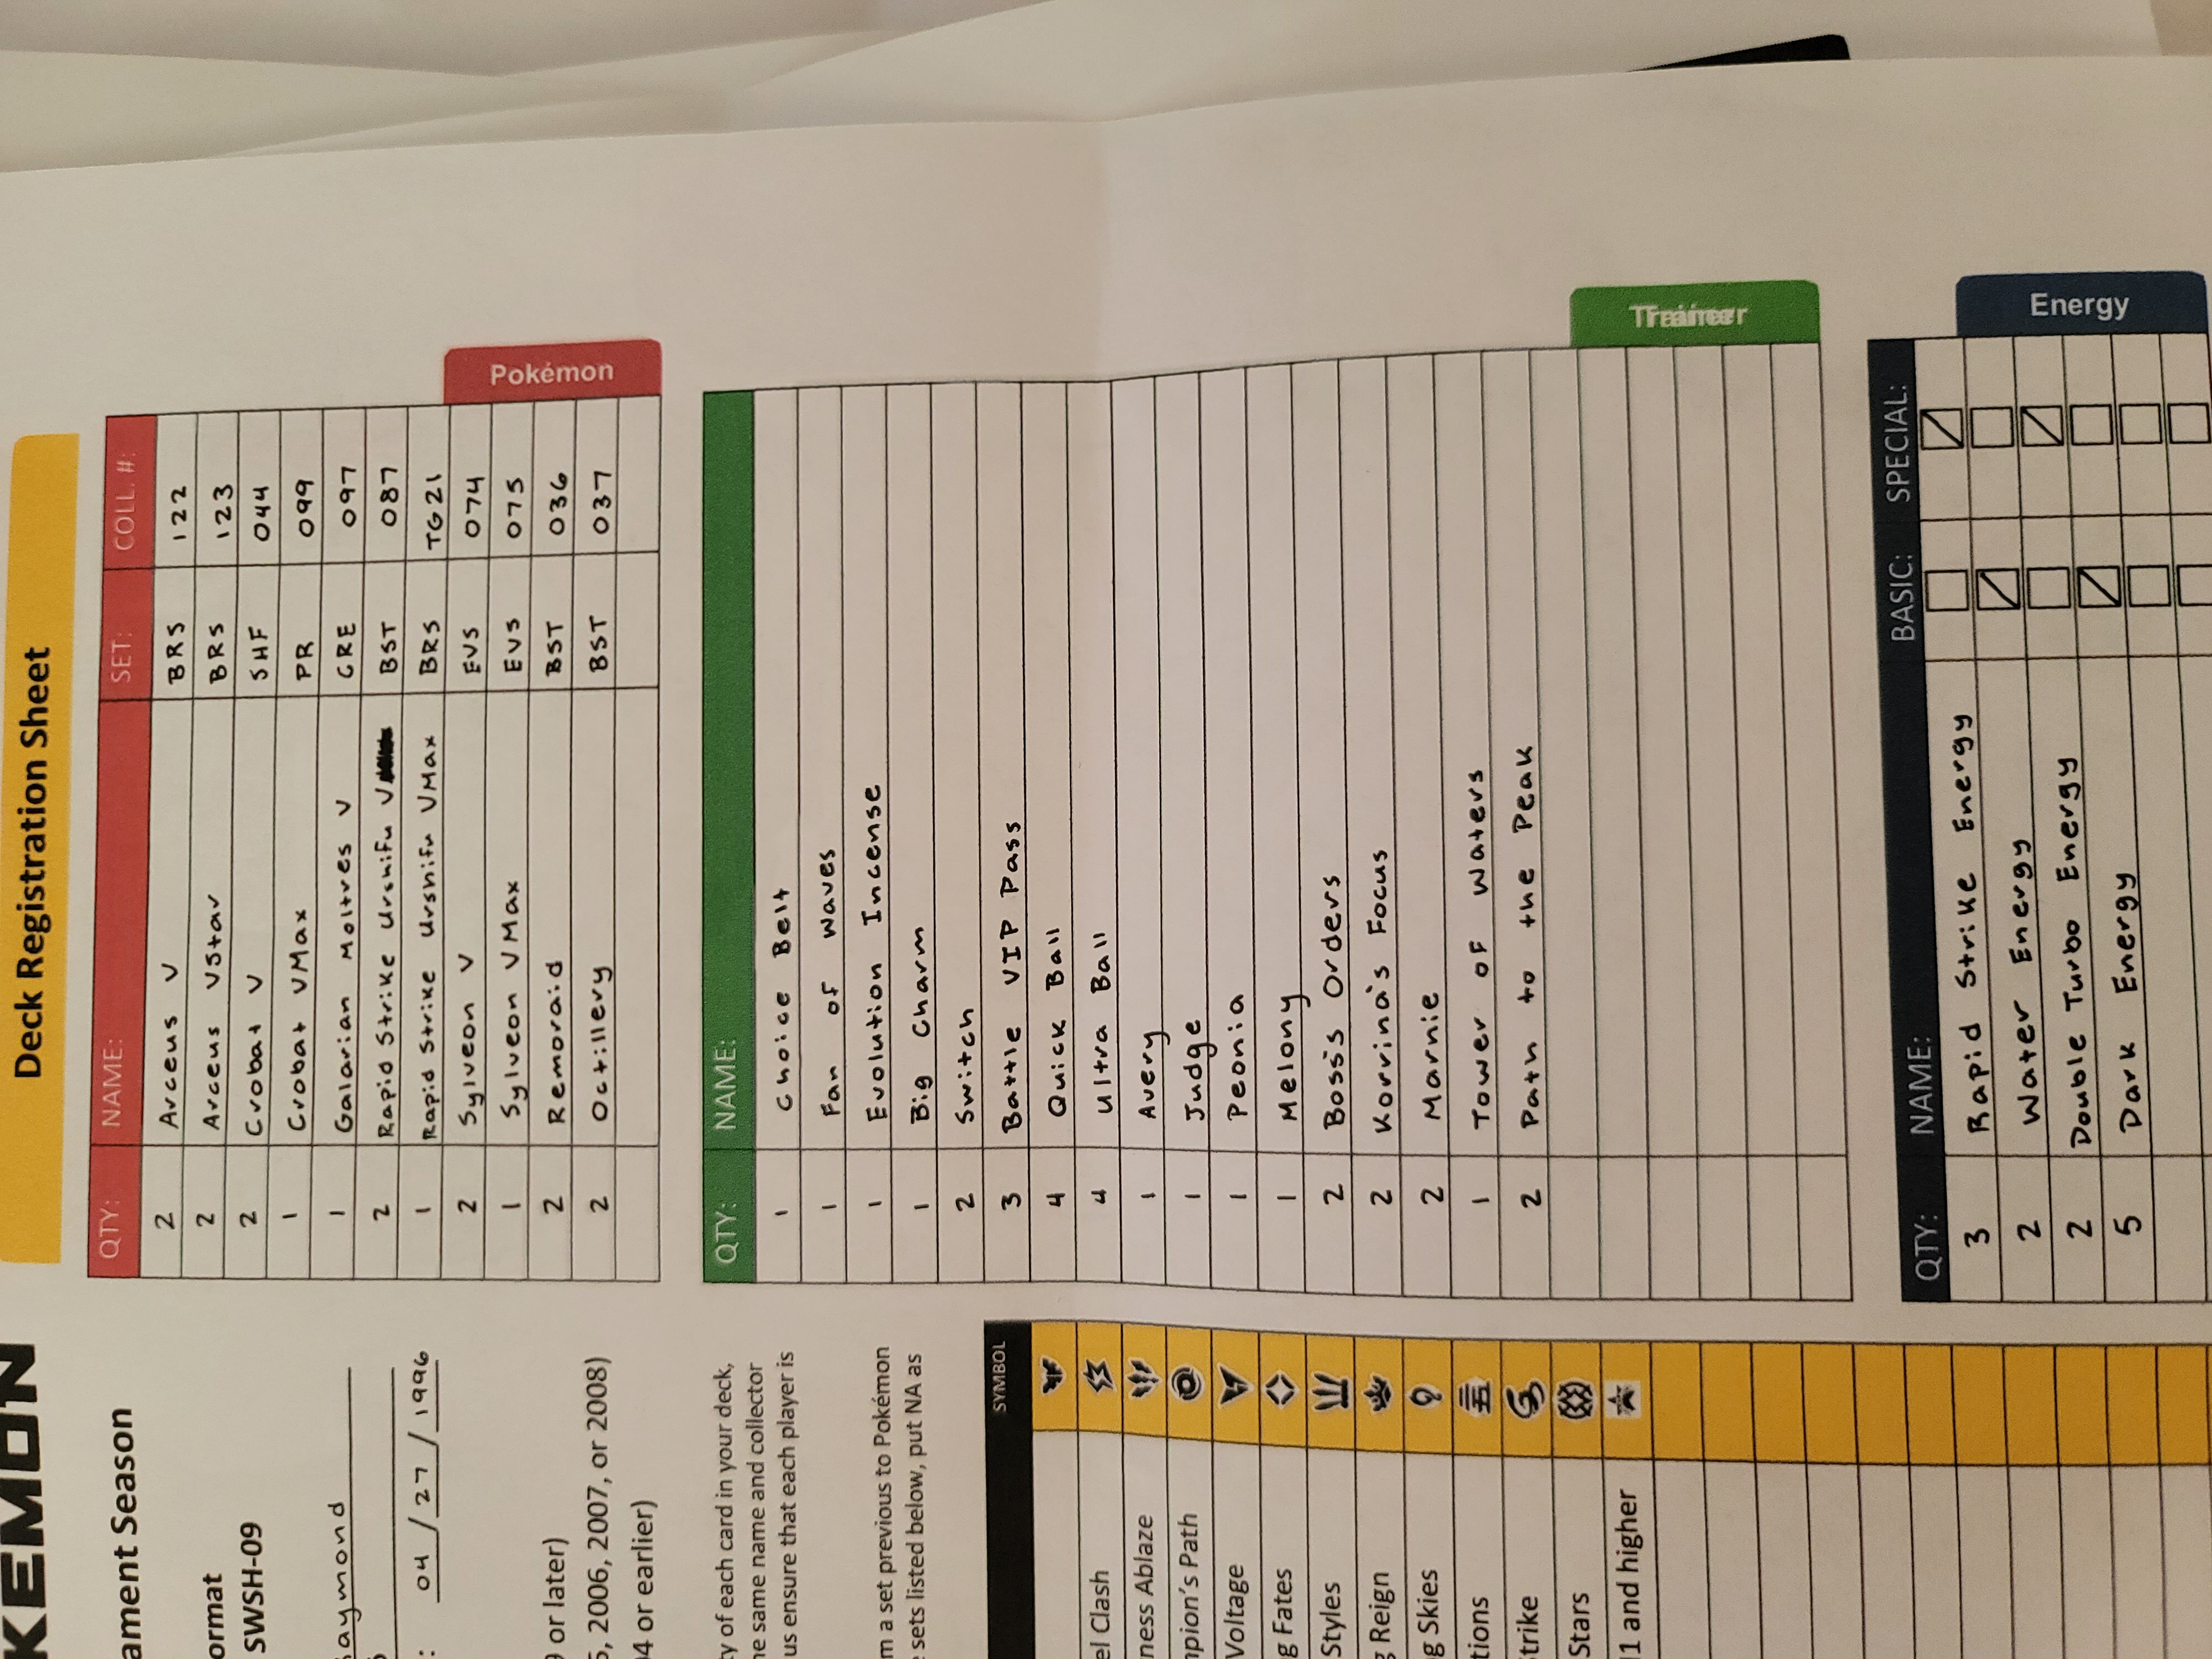 KEMON
Deck Registration Sheet
ament Season
ormat
SWSH-09
aymond
: 04 / 27 / 1996
9 or later)
5, 2006, 2007, or 2008)
04 or earlier)
ty of each card in your deck,
ne same name and collector
us ensure that each player is
m a set previous to Pokémon
e sets listed below, put NA as
SYMBOL
el Clash
ness Ablaze
npion's Path
Voltage
g Fates
Styles
g Reign
g Skies
tions
Strike
Stars
11 and higher
QTY: NAME: SET: COLL. #:
2 Arceus V BRS 122
2 Arceus VStar BRS 123
2 Crobat V SHF 044
1 Crobat VMax PR 099
1 Galarian Moltres V CRE 097
2 Rapid Strike Urshifu V BST 087
1 Rapid Strike Urshifu VMax BRS TG21
2 Sylveon V EVS 074
1 Sylveon VMax EVS 075
2 Remoraid BST 036
2 Octillery BST 037
Pokémon
QTY: NAME:
1 Choice Belt
1 Fan of waves
1 Evolution Incense
1 Big Charm
2 Switch
3 Battle VIP Pass
4 Quick Ball
4 Ultra Ball
1 Avery
1 Judge
1 Peonia
1 Melony
2 Boss's Orders
2 Korrina's Focus
2 Marnie
1 Tower of Waters
2 Path to the Peak
Trainer
QTY: NAME: BASIC: SPECIAL:
3 Rapid Strike Energy
2 Water Energy
2 Double Turbo Energy
5 Dark Energy
Energy